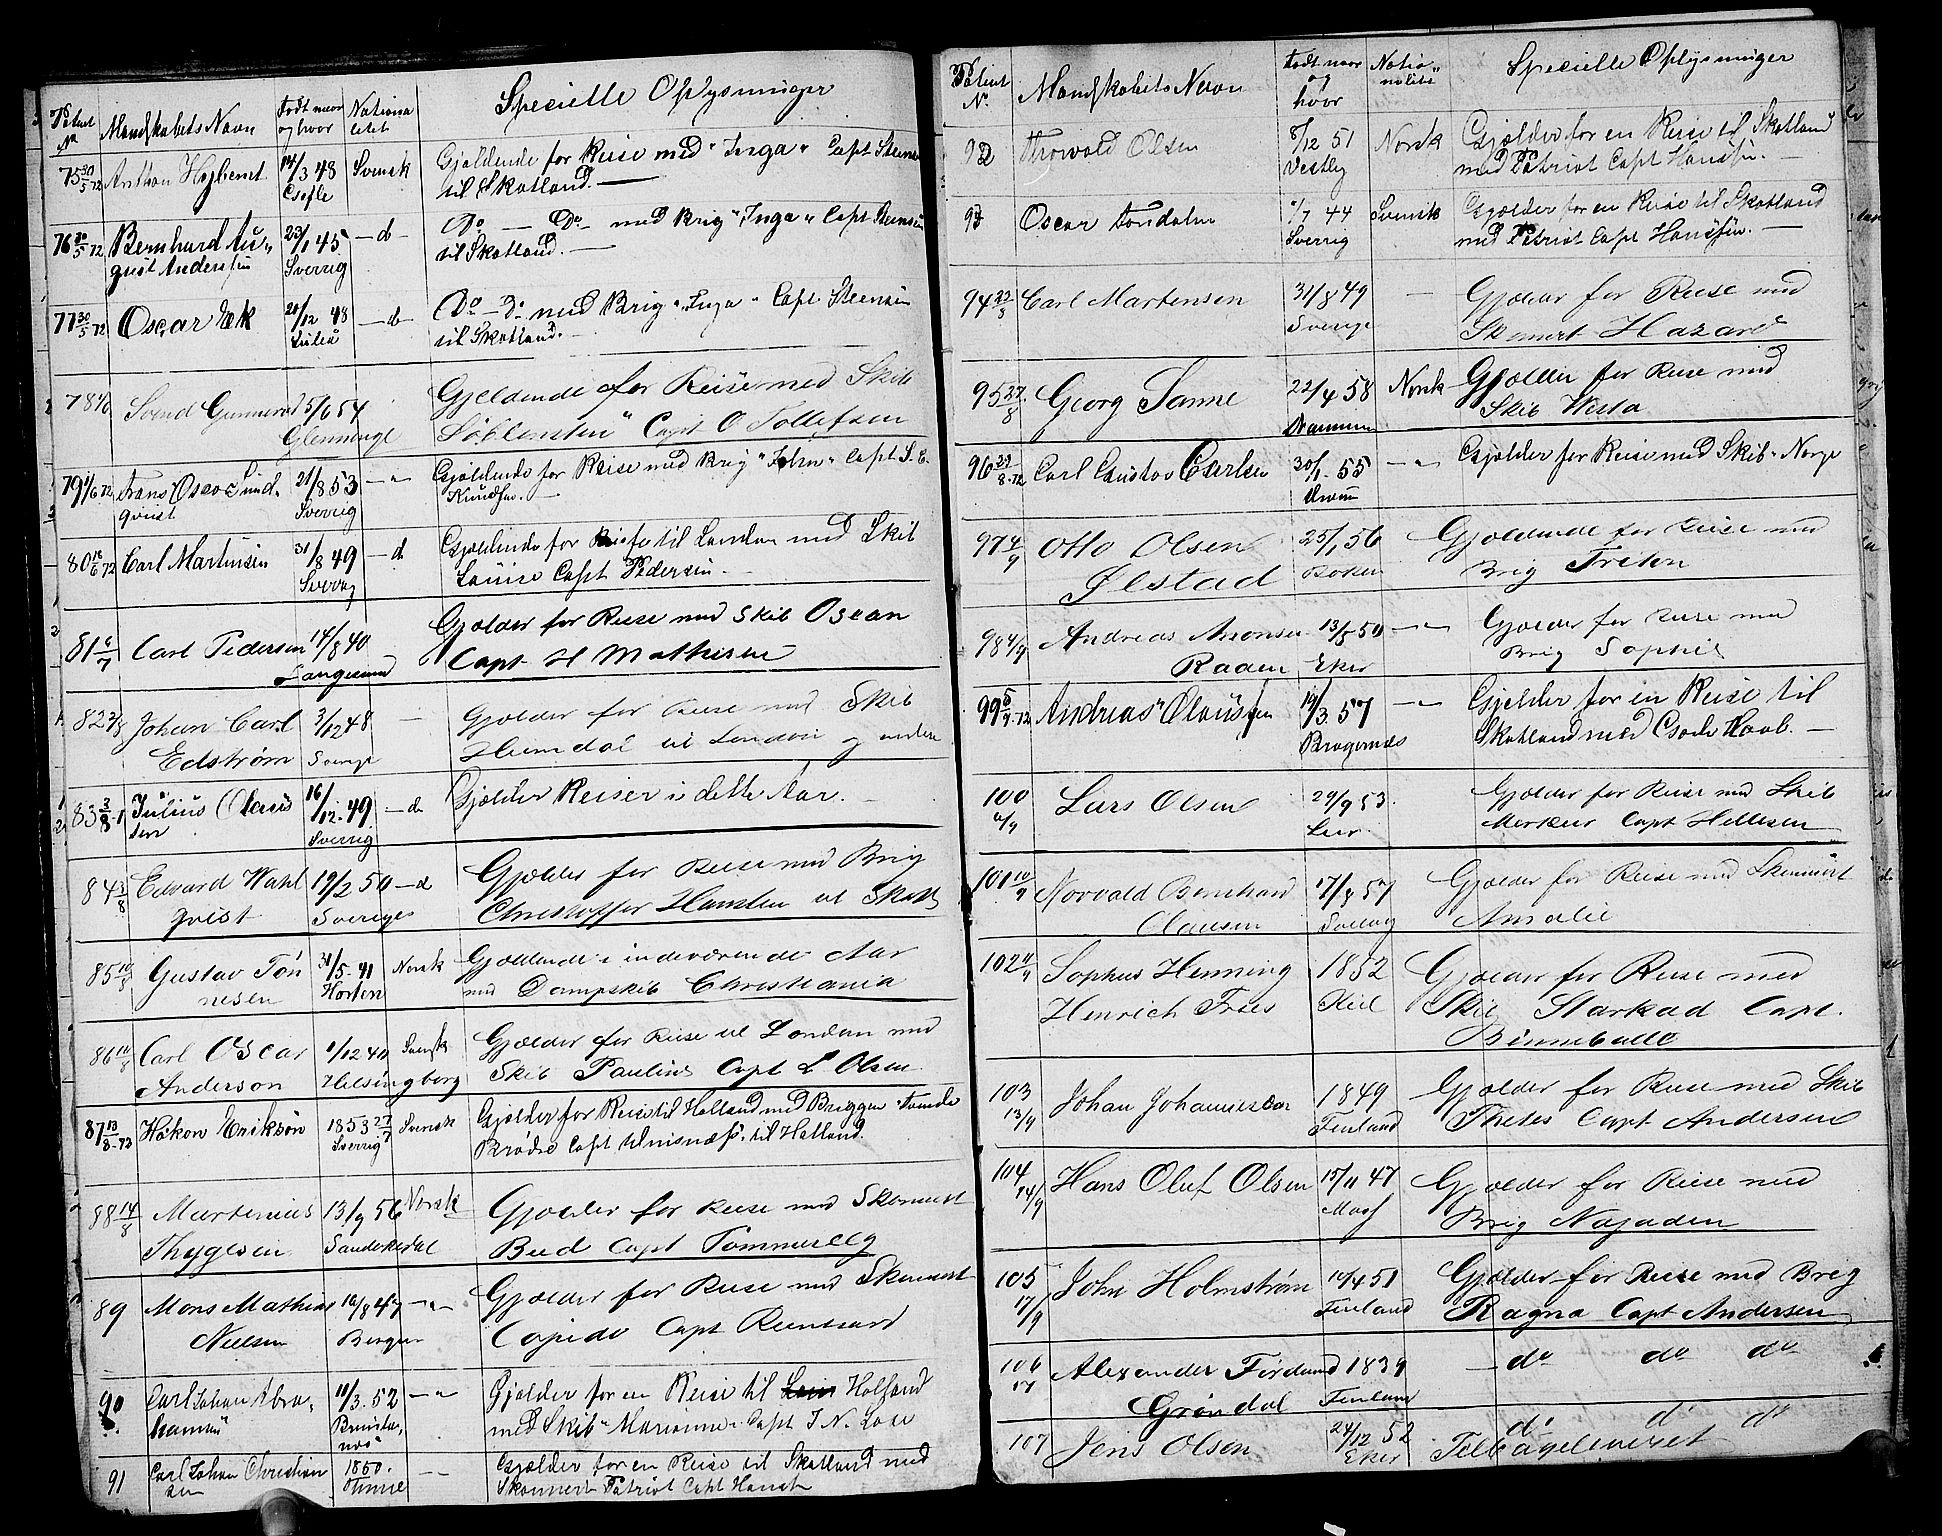 Patent Nr. Mandskabets Navn Født naar og hvor Nationalitet Specielle Oplysninger
75 30/5 72 Anthon Högberst 14/3 48 Svensk Gjældende for Reise med "Inga" Capt Steensen
Gefle til Skotland.
76 30/5 72 Bernhard Au- 23/1 45 — d — Do — Do — med Brig "Inga" Capt Steensen
gust Andersen Sverrig til Skotland.
77 30/5 72 Oscar Ek 20/12 48 — d — Do — Do med Brig "Inga" Capt. Steensen
Luleå til Skotland.
78 4/6 Svend Gunnerød 5/6 54 Gjeldende for Reise med Skib
Glemminge Capt O Tollefsen
79 4/6 72 Frans Oscar Lind- 21/8 53 — " Gjældende for Reise med Brig "John" Capt S. E.
qvist Sverrig Knudsen.
80 16/6 72 Carl Martinsen 31/8 49 — d Gjældende for Reise til London med Skib
Sverrig Louise Capt Pedersen.
81 6/7 Carl Pedersen 14/8 40 Gjælder for Reise med Skib Ocean
Langesund Capt H Mathisen
82 3/8 Johan Carl 3/12 48 — Gjælder for Reise med Skib
Edstrøm Sverige Heimdal til London og videre
83 3/8 Julius Olaus 16/12 49 — d Gjælder Reiser i dette Aar —
sen Sverrig
84 3/8 Edvard Wahl 19/2 50 — d Gjælder for Reise med Brig
qvist Sveriges Christoffer Hansten til Skotl
85 10/8 Gustav Tön 31/5 41 Norsk Gjældende i indeværende Aar
nesen Horten med Dampskib Christiania
86 10/8 Carl Oscar 1/12 40 Svensk Gjælder for Reise til London med
Anderson Helsingborg Skib Pauline Capt L Olsen
87 13/8 72 Håkon Erikson 1853 27/7 Svensk Gjælder for Reise til Holland med Briggen Tvende
Sverrig Brødre Capt til Holland.
88 14/8 Martenius 13/9 56 Norsk Gjælder for Reise med Skonnert
Thygesen Sandekedal Bud Capt Tommereeg
89 Mons Mathias 16/8 47 — " — Gjælder for Reise med Skonnert
Nielsen Bergen Cupido Capt Reinhard
90 Carl Johan Abra- 11/3 52 — " Gjælder for en Reise til Holland
hamsen med Skib "Marianne" Capt J. N. Lou
91 Carl Johan Christian 1850. — Gjælder for en Reise til Skotland med
sen Skonnert Patriot Capt Hanst
Patent N. Mandskabets Navn Født naar og hvor Nationalitet Specielle Oplysninger
92 Thorvald Olsen 8/12 51 Norsk Gjælder for en Reise til Skotland
Vestby med Patriot Capt Hansen. —
93 Oscar Tondalin 1/7 44 Svensk Gjælder for en Reise til Skotland
Sverrig med Patriot Capt Hansen. —
94 23/8 Carl Martensen 31/8 49 — Gjælder for Reise med
Sverige Skonnert Hazard
95 27/8 Georg Sanne 22/4 58 Norsk Gjælder for Reise med
Drammen Skib Vesta
96 29/8 72 Carl Gustav Carlsen 30/1 55 — " Gjælder for Reise med Skib "Norge
Dramn
97 4/9 Otto Olsen 25/1 56 Gjældende for Reise med
Ølstad Brig Triton
98 4/9 Andreas Aronsen 13/5 50 — " Gjælder for Reise med
Raaen Eker Brig Sophie
99 5/9 72 Andreas Olaussen 19/3 57 — " Gjelder for en Reise til
Bragernæs Skotland med Gode Haab. —
100 6/9 Lars Olsen 29/9 53. Gjælder for Reise med Skib
Lier. Merkur Capt Hellesen
101 10/9 Norvald Bernhard 17/8 57 Gjælder for Reise med Skonnert
Clausen Svelvig Amalie
102 11/9 Sophus Henning 1852 Gjælder for Reise med
Henrich Fries Kiel Skib Starkad Capt.
Binneballe
103 13/9 Johan Johannesson 1849 Gjælder for Reise med Skib
Finland Thetes Capt Andersen
104 14/9 Hans Oluf Olsen 15/11 47 Gjælder for Reise med
Moss Brig Najaden
105 17/9 John Holmstrøm 10/4 51 Gjælder for Reise med Brig
Finland Ragna Capt Andersen
106 17 Alexander Ferdinand 1839 — do do do
Grøndal Finland
107 Jens Olsen 24/12 52 do do do
Eker Tilbageleveret